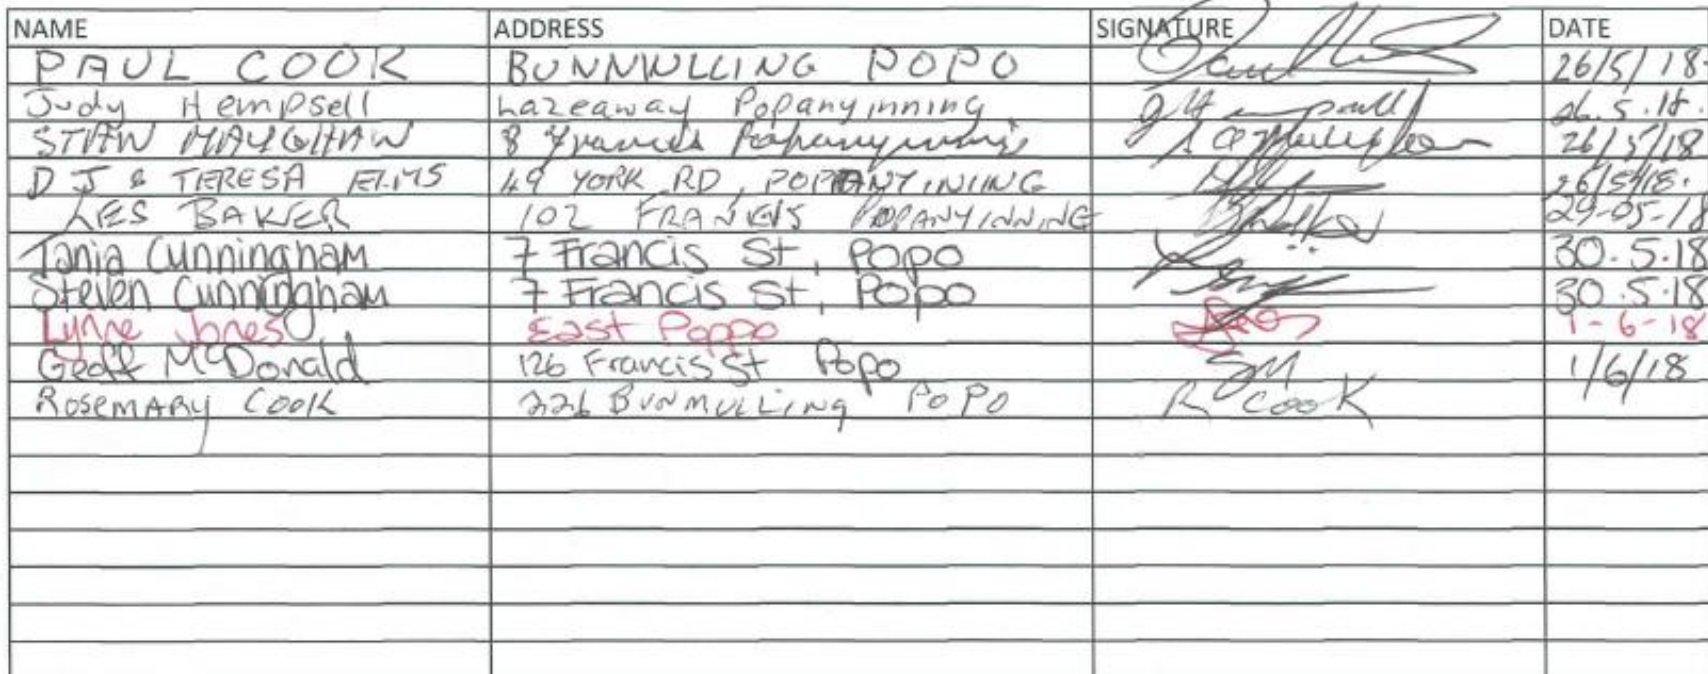 NAME ADDRESS SIGNATURE DATE
PAUL COOK BUNNWULLING POPO 26/5/18
Judy Hempsell Lazeaway Popanyinning J Hempsell 26.5.18.
STAN MAUGHAN 8 Francis Popanyinning 26/5/18
D J & TERESA ELMS 49 YORK RD, POPANYINING 26/5/18.
LES BAKER 102 FRANCIS POPANYINNING 29-05-18
Tania Cunningham 7 Francis St, Popo 30.5.18
Steven Cunningham 7 Francis St, Popo 30.5.18
Lynne Jones East Poppo 1-6-18
Geoff McDonald 126 Francis St Popo GM 1/6/18
Rosemary Cook 226 Bunmulling Popo R Cook